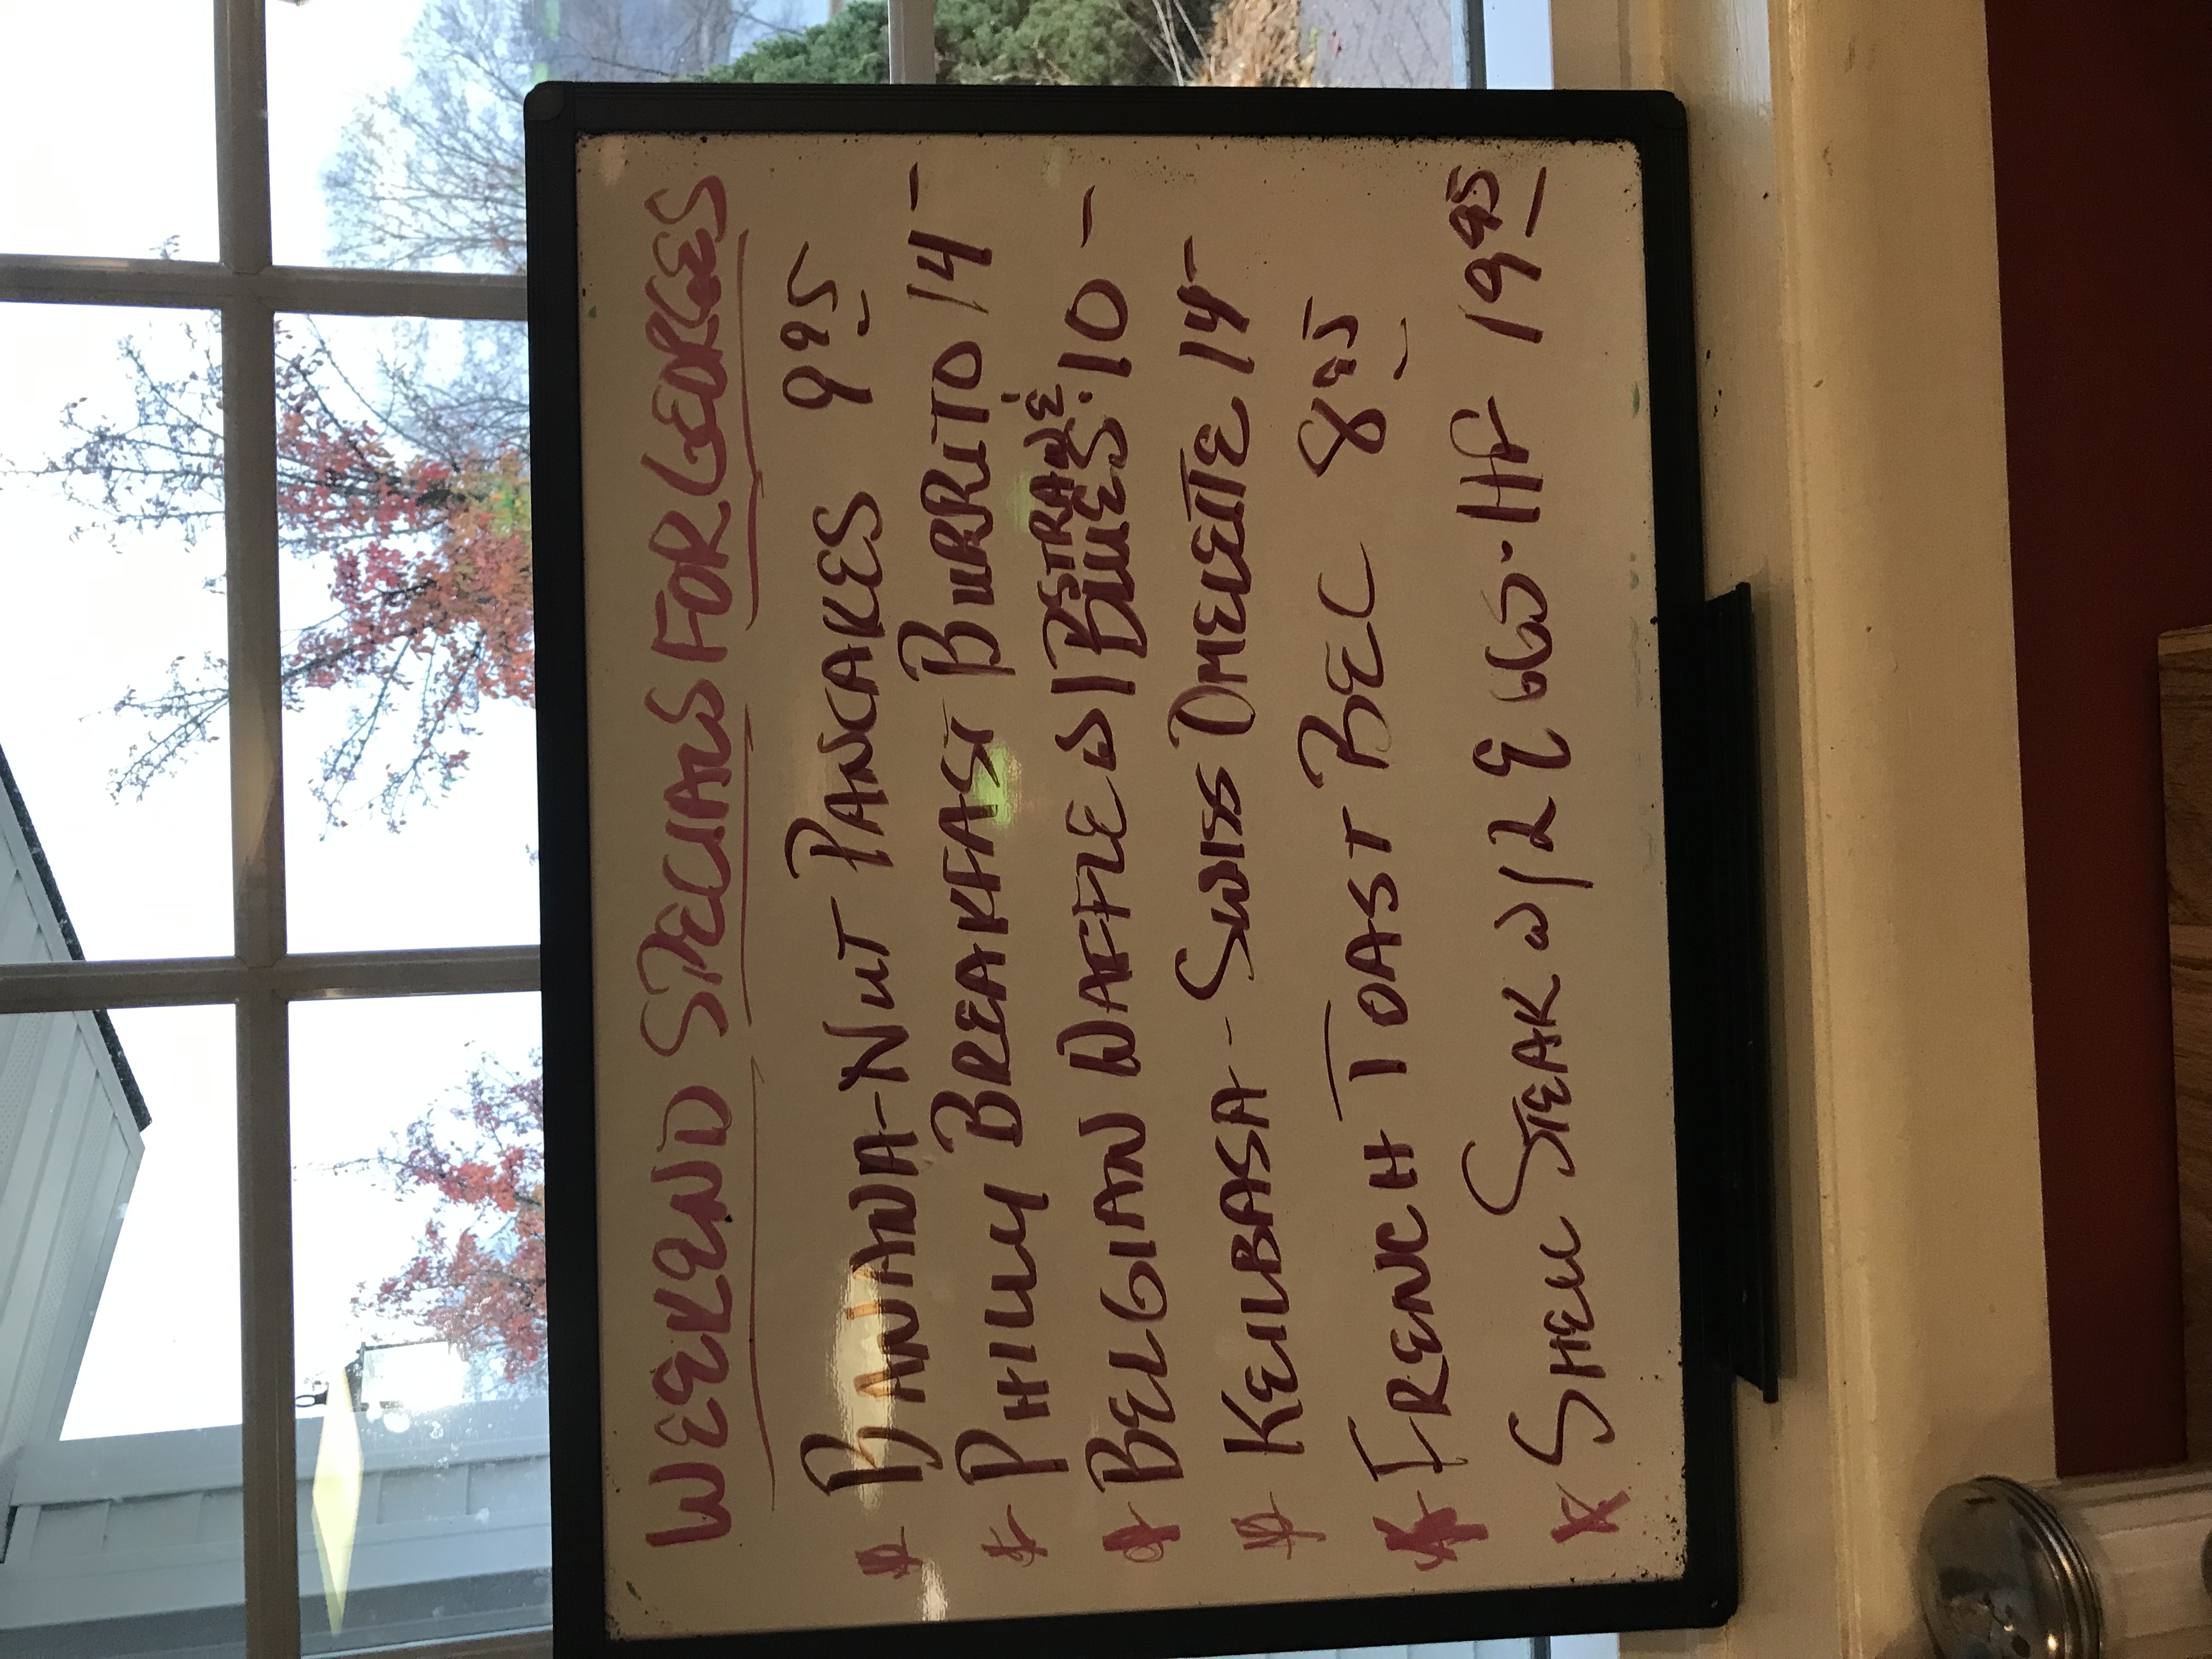 WEEKEND SPECIALS FOR GEORGES
* BANANA-NUT PANCAKES 9 95
* PHILLY BREAKFAST BURRITO 14 -
* BELGIAN WAFFLE W/ STRAWB. BLUES. 10 -
* KEILBASA - SWISS OMELETTE 14 -
* FRENCH TOAST BEC 8 95
* SHELL STEAK W/ 2 EGGS. HF 19 95